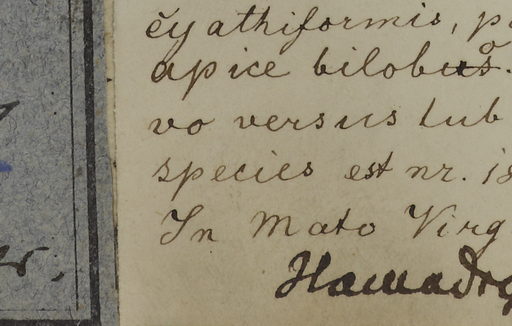 cyathiformis, p
apice bilobo.
vo versus tub
species est nr. 18
In Mato Virg
Hamadry